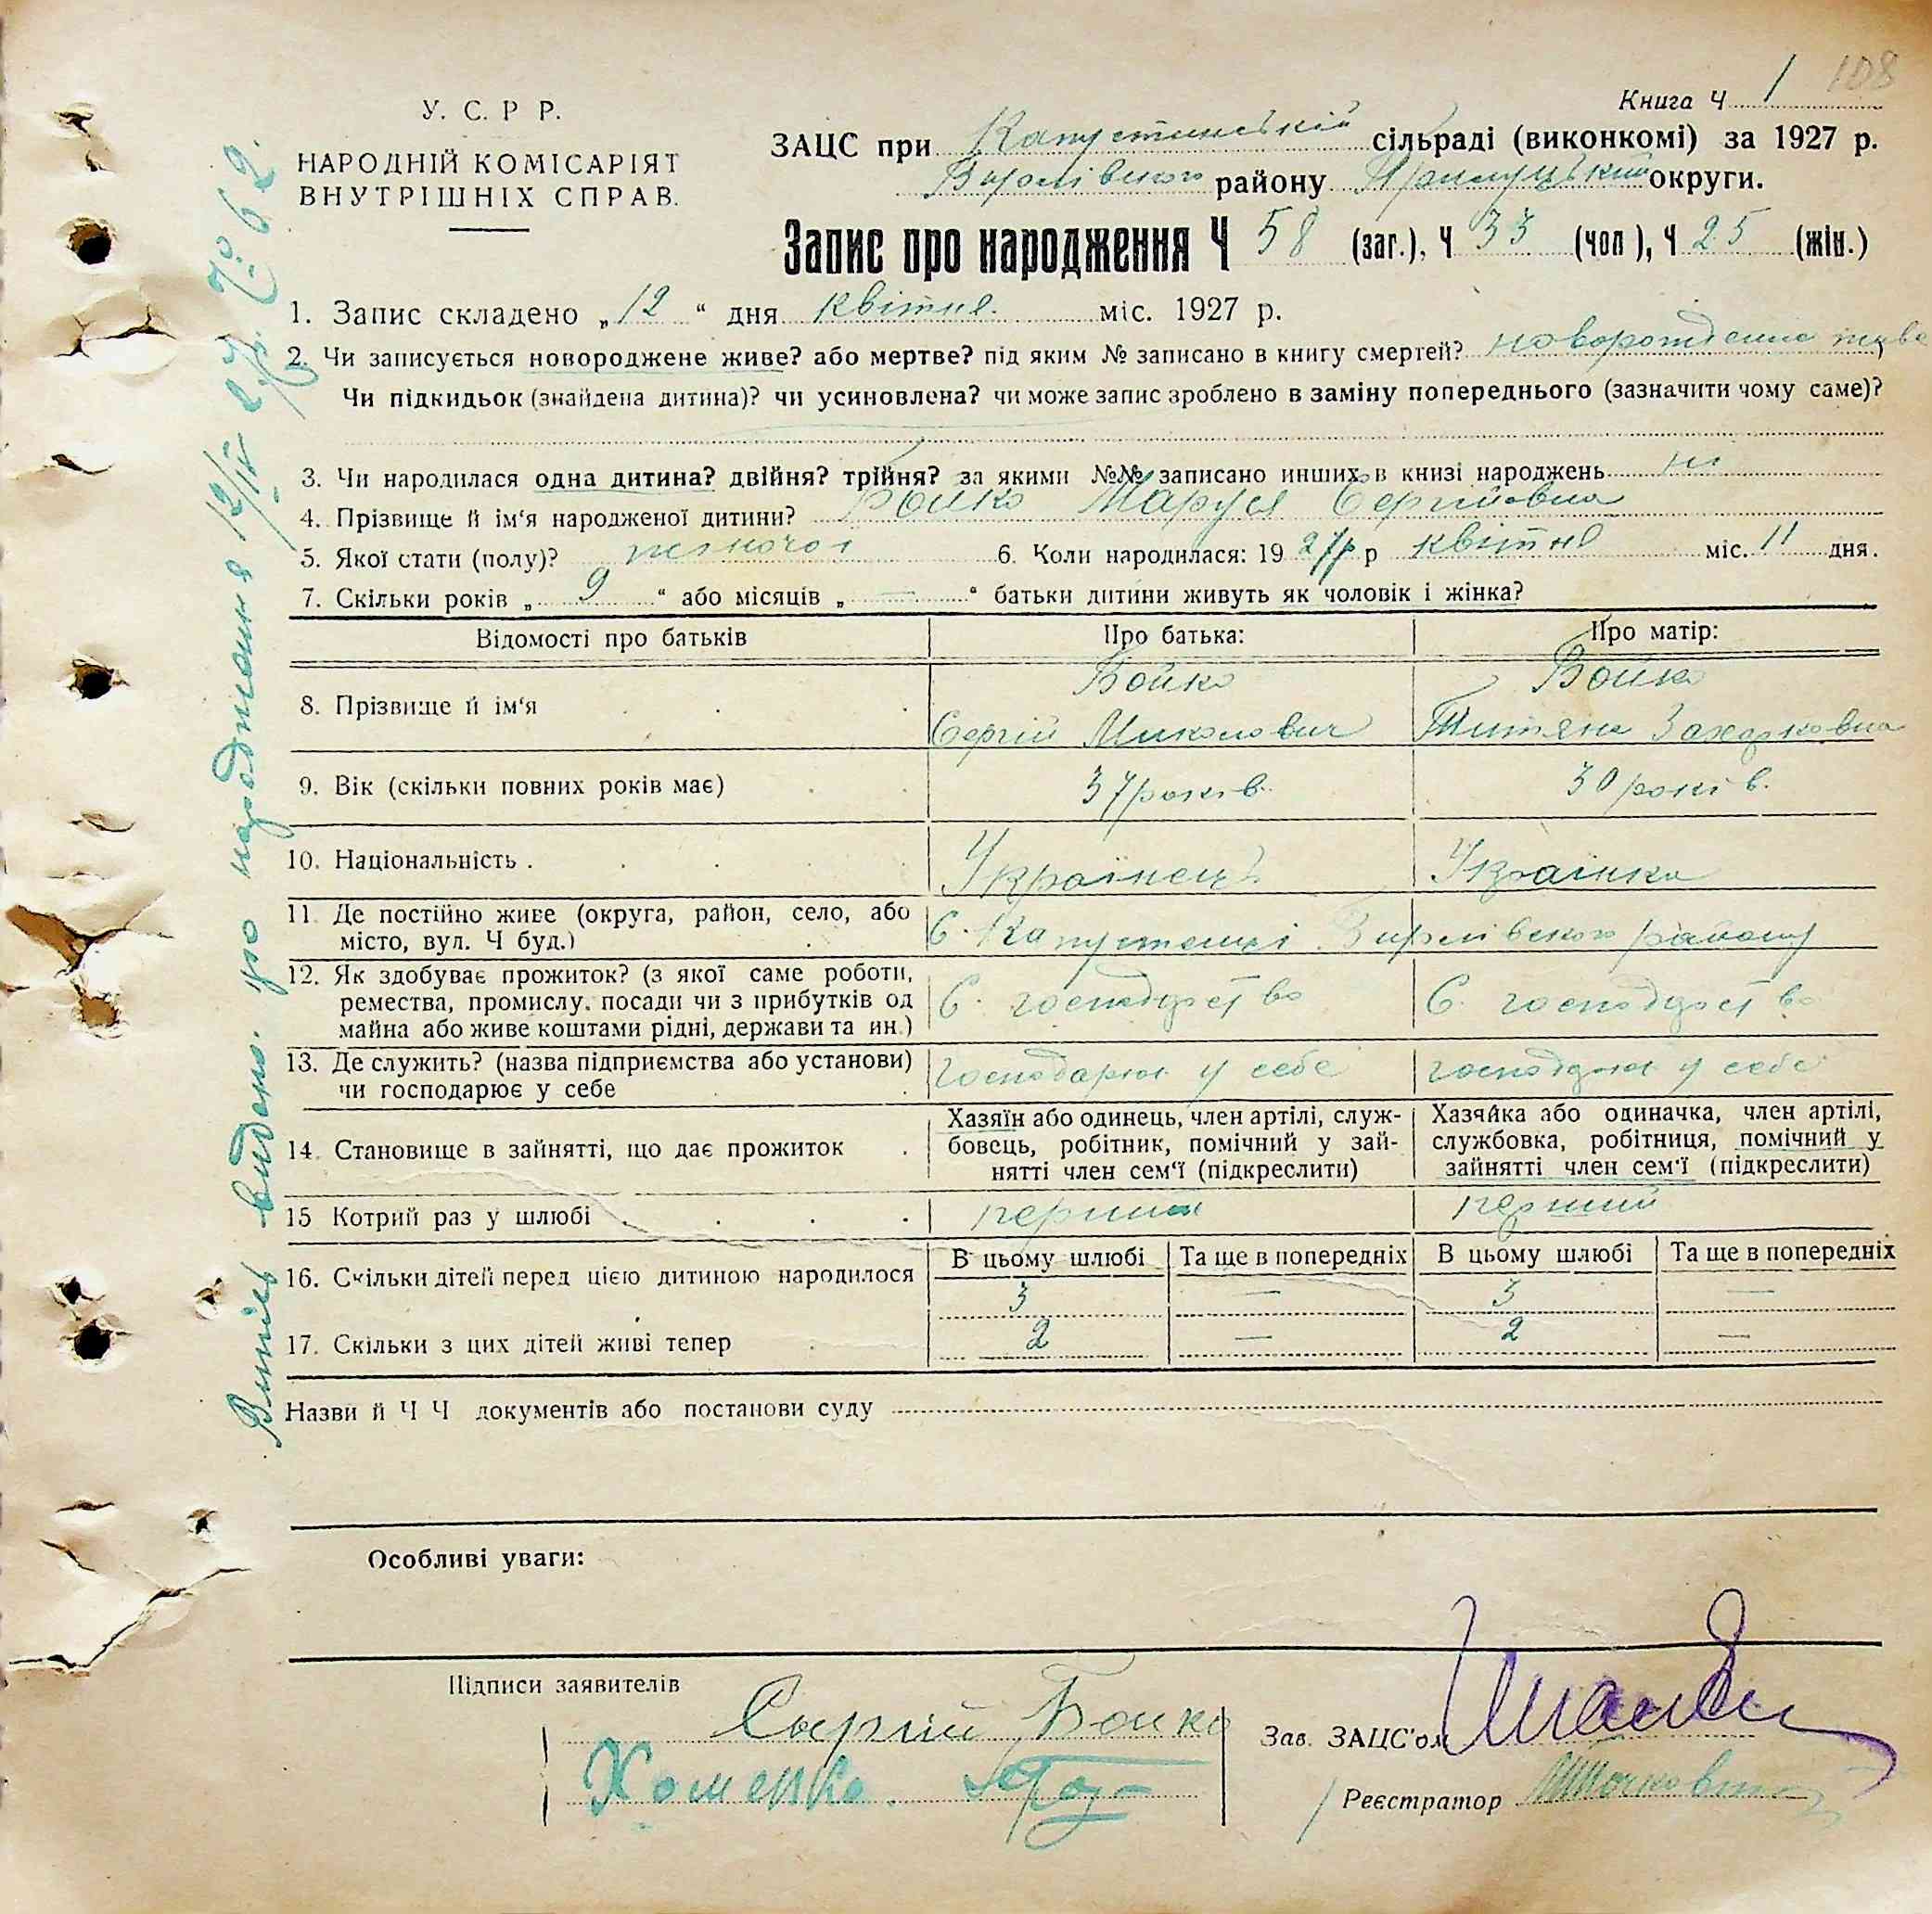 108
Книга Ч 1
У. С. Р Р.
НАРОДНІЙ КОМІСАРІЯТ
ВНУТРІШНІХ СПРАВ.
ЗАЦС при Капустинській сільраді (виконкомі) за 1927 р.
району Прилуцької округи.
Запис про народження Ч 58 (заг.), Ч 33 (чол), Ч 25 (жін.)
1. Запис складено „12“ дня квітня. міс. 1927 р.
2. Чи записується новороджене живе? або мертве? під яким № записано в книгу смертей? новорожденне живе
Чи підкидьок (знайдена дитина)? чи усиновлена? чи може запис зроблено в заміну попереднього (зазначити чому саме)?
3. Чи народилася одна дитина? двійня? трійня? за якими №№ записано инших в книзі народжень ні
4. Прізвище й ім‘я народженої дитини? Бойко Маруся Сергіївна
5. Якої стати (полу)? жіночої 6. Коли народилася: 19 27р р квітня міс. 11 дня.
7. Скільки років „ 9 “ або місяців „ — “ батьки дитини живуть як чоловік і жінка?
Відомості про батьків Про батька: Про матір:
8. Прізвище й ім‘я Бойко Сергій Миколович Бойко Титяна Захарковна
9. Вік (скільки повних років має) 37 років. 30 років.
10. Національність . Українець Українка
11. Де постійно живе (округа, район, село, або місто, вул. Ч буд.) С. Капустинці району
12. Як здобуває прожиток? (з якої саме роботи, ремества, промислу, посади чи з прибутків од майна або живе коштами рідні, держави та ин.) С. господарство С. господарство
13. Де служить? (назва підприємства або установи) чи господарює у себе господарює у себе господарює у себе
14. Становище в зайнятті, що дає прожиток Хазяїн або одинець, член артілі, службовець, робітник, помічний у зайнятті член сем‘ї (підкреслити) Хазяйка або одиначка, член артілі, службовка, робітниця, помічний у зайнятті член сем‘ї (підкреслити)
15 Котрий раз у шлюбі перший перший
В цьому шлюбі Та ще в попередніх В цьому шлюбі Та ще в попередніх
16. Скільки дітей перед цією дитиною народилося 3 — 3 —
17. Скільки з цих дітей живі тепер 2 — 2 —
Назви й Ч Ч документів або постанови суду
Особливі уваги:
Підписи заявителів
Сергій Бойко
Хоменко.
Зав. ЗАЦС'ом
Реєстратор
Витяг видано. про народження 12/IV 27р. № 62.